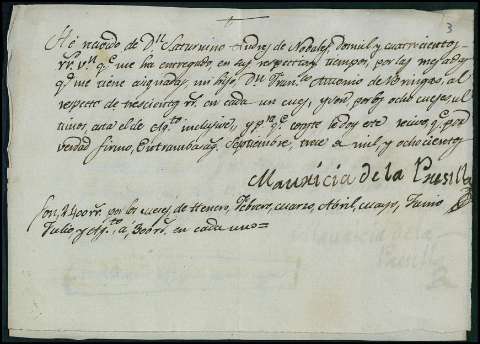 3
He recivido de Dn. Saturnino Andres de Nobales, dosmil y cuatrocientos
rr. vn. qe. me ha entregado en sus respectivos tiempos, por las mesadas
qe. me tiene asignadas, mi hijo, Dn. Franco. Antonio de, al
respecto de trescientos rr. en cada un mes, y son por los ocho meses, ul
timos, asta el de Agto. inclusive, y pa. qe. conste le doy este recivo, qe. por
verdad firmo, Entrambasag. Septiembre, trece de mil, y ochocientos
Mauricia de la Puesilla
son, 2400 rr. por los meses, de Henero, Febrero, marzo, Abril, mayo, Junio
Julio y Agto. á, 300 rr. en cada uno=